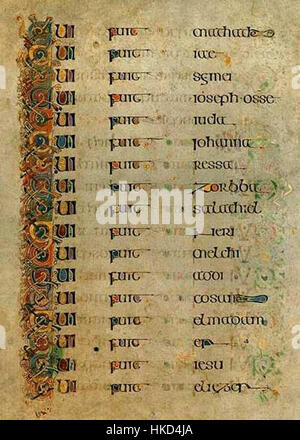 QUI FUIT mathathe
QUI FUIT iae
QUI FUIT semei
QUI FUIT ioseph osse
QUI FUIT iuda
QUI FUIT iohanna
QUI FUIT ressa
QUI FUIT zorbba
QUI FUIT salathiel
QUI FUIT neri
QUI FUIT melchi
QUI FUIT addi
QUI FUIT cosam
QUI FUIT elmadam
QUI FUIT er
QUI FUIT iesu
QUI FUIT eliezer
alamy
Image ID: HKD4JA
www.alamy.com